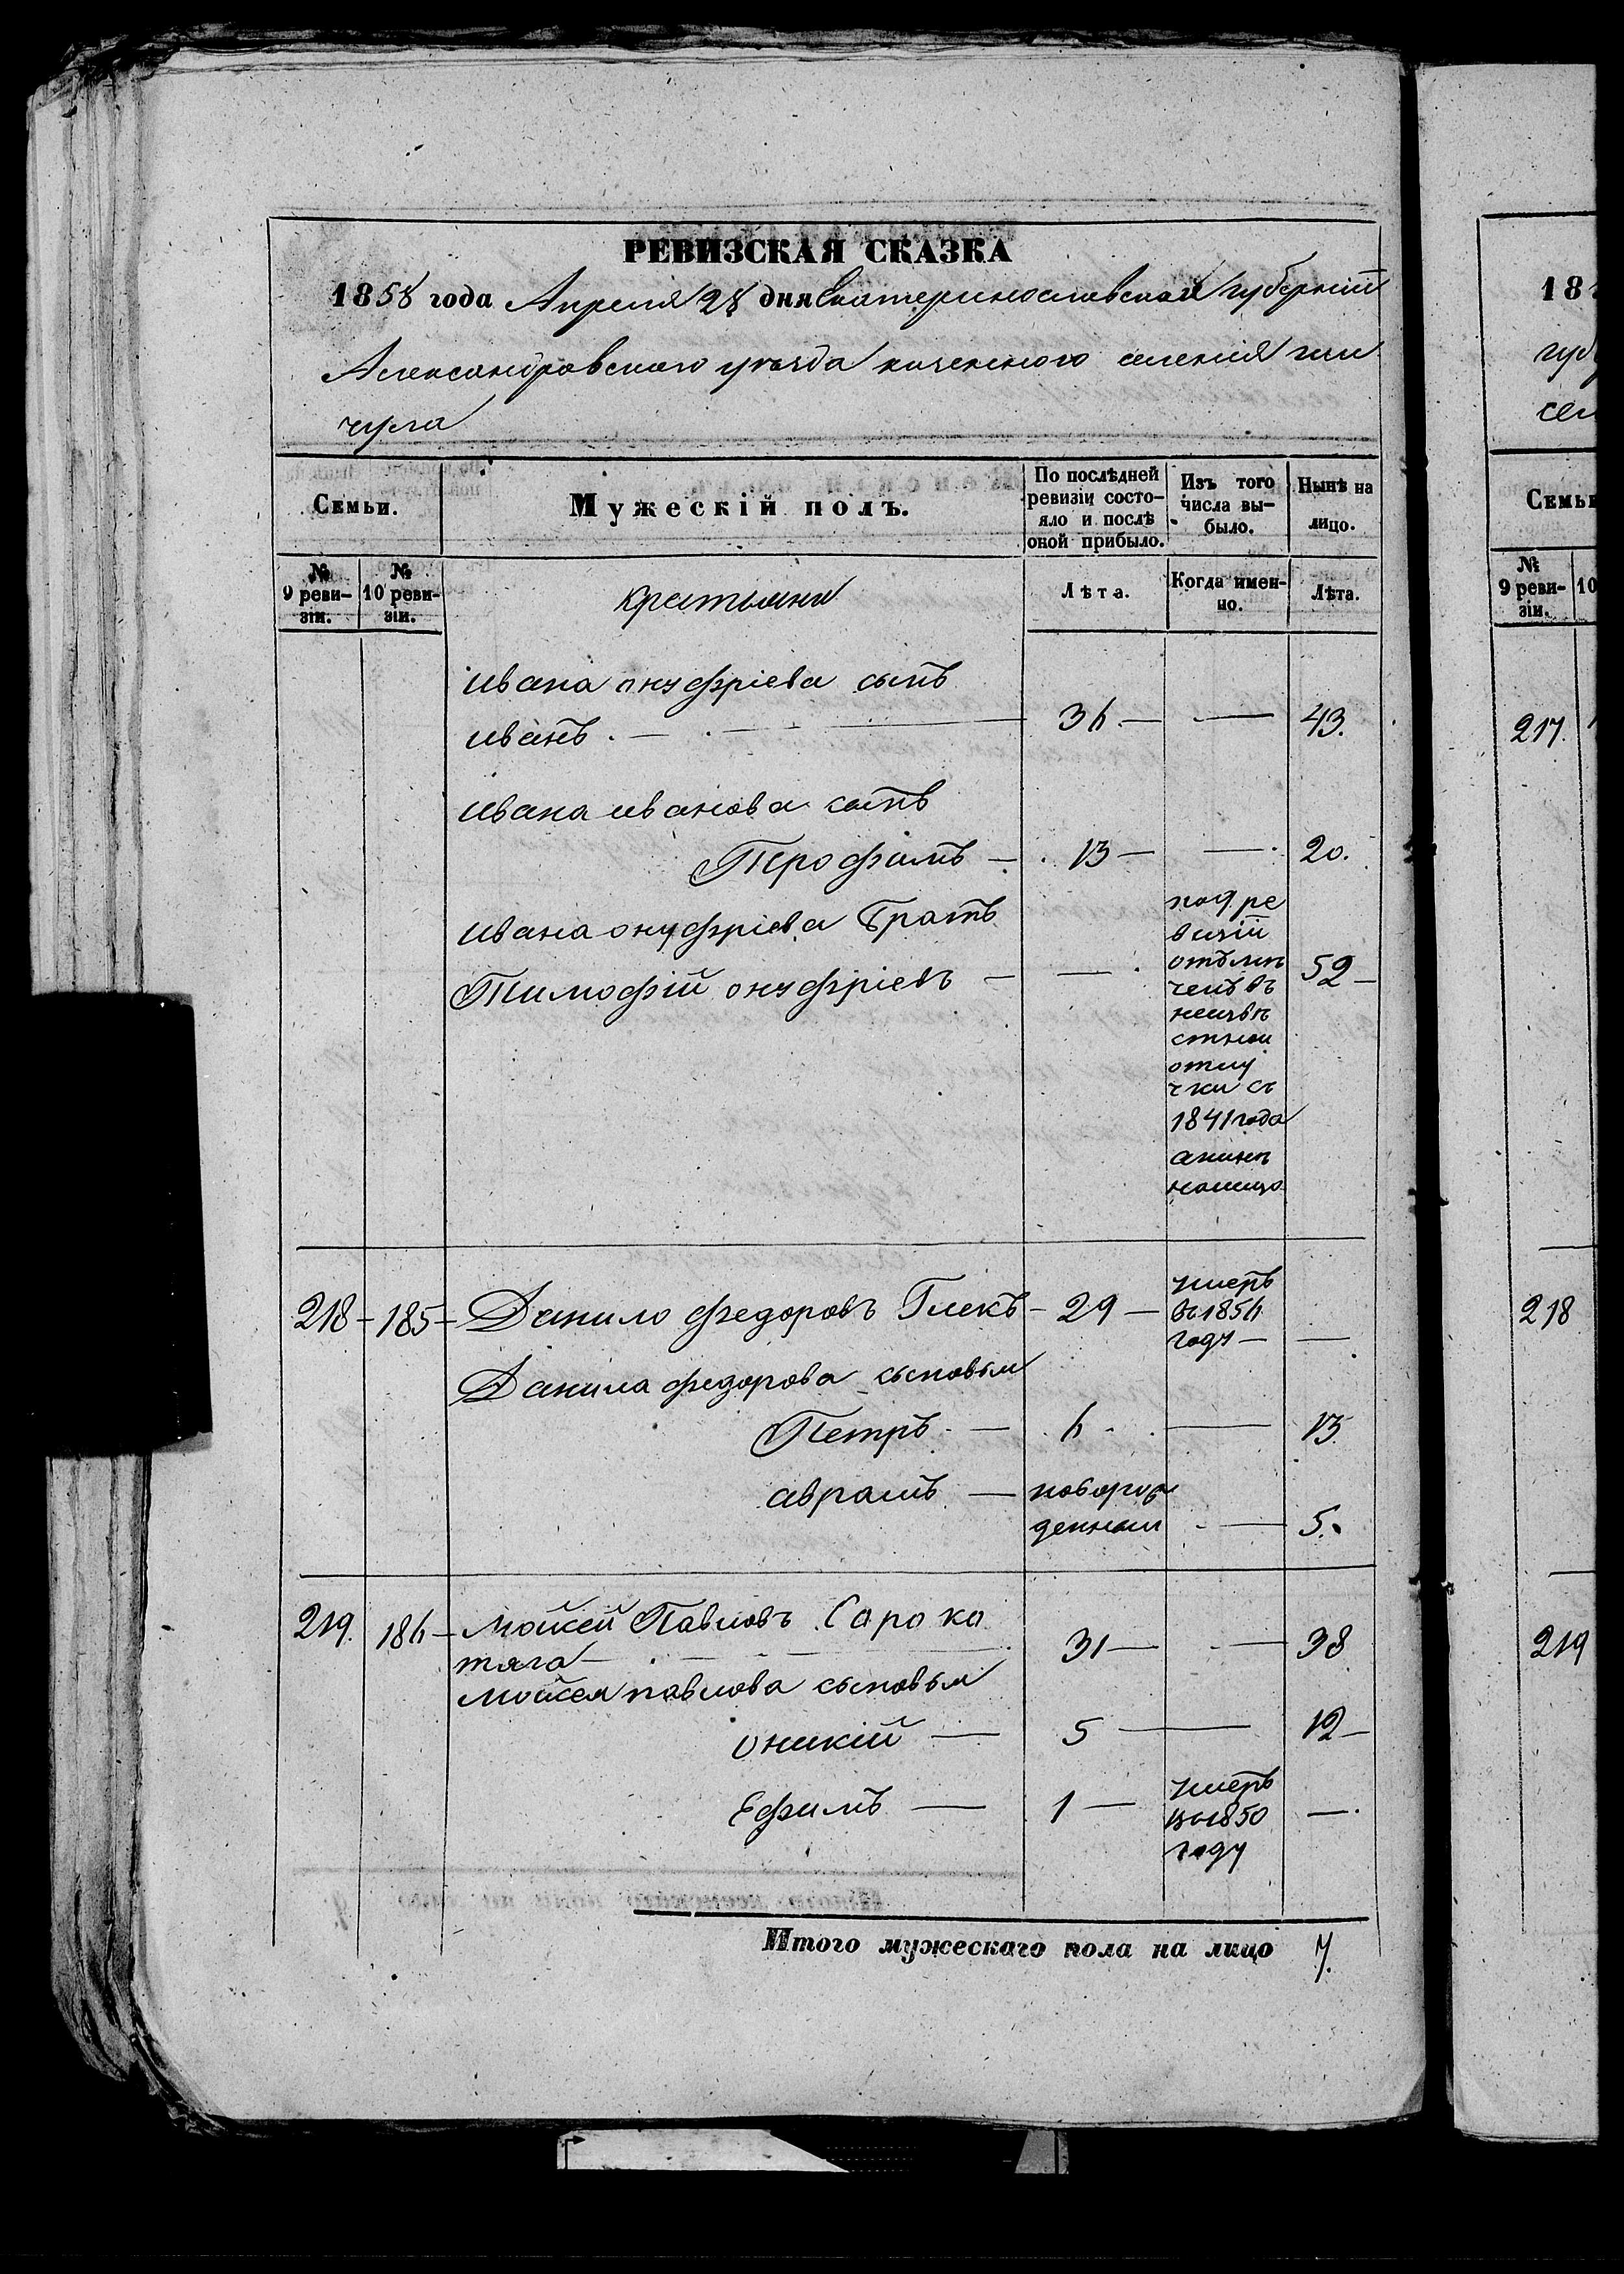 РЕВИЗСКАЯ СКАЗКА
1858 года Апреля 28 дня Екатеринославской губерніи
Александровского уѣзда казенного селенія гин
чула
Семьи.
Мужескій полъ.
По послѣдней
ревизіи состо-
яло и послѣ
оной прибыло.
Изъ того
числа вы-
было.
Нынѣ на
лицо.
№
9 реви-
зіи.
№
10 реви-
зіи.
крестьяни
Лѣта.
Когда имен-
но.
Лѣта.
Ивана онуфріева сынъ
иванъ. — 36. — — 43.
Ивана иванова сынъ
Трофимъ — 13 — — 20.
Ивана онуфріева братъ
Тимофій онуфріевъ — — 52 —
по 9 ре
визіи
отъмѣ
ченъ въ
неизвѣ
стной
отлу
чки съ
1841 года
анинѣ
налицо
218 - 185 - Данило федоровъ Глекъ - 29 —
умеръ
въ 1856
году — —
Данила федорова сыновья
Петръ. — 6. — 13.
аврамъ —
новорож
денный — 5.
219. 186 - Мойсей Павловъ Сорока
тяга — 31 — — 38
Мойсея павлова сыновья
оникій — 5 — 12 —
Ефимъ — 1 —
умеръ
въ 1850
году
—.
Итого мужескаго пола на лицо 7.
18
губ
сел
Семьи
№
9 реви-
зіи.
10
217.
218
219